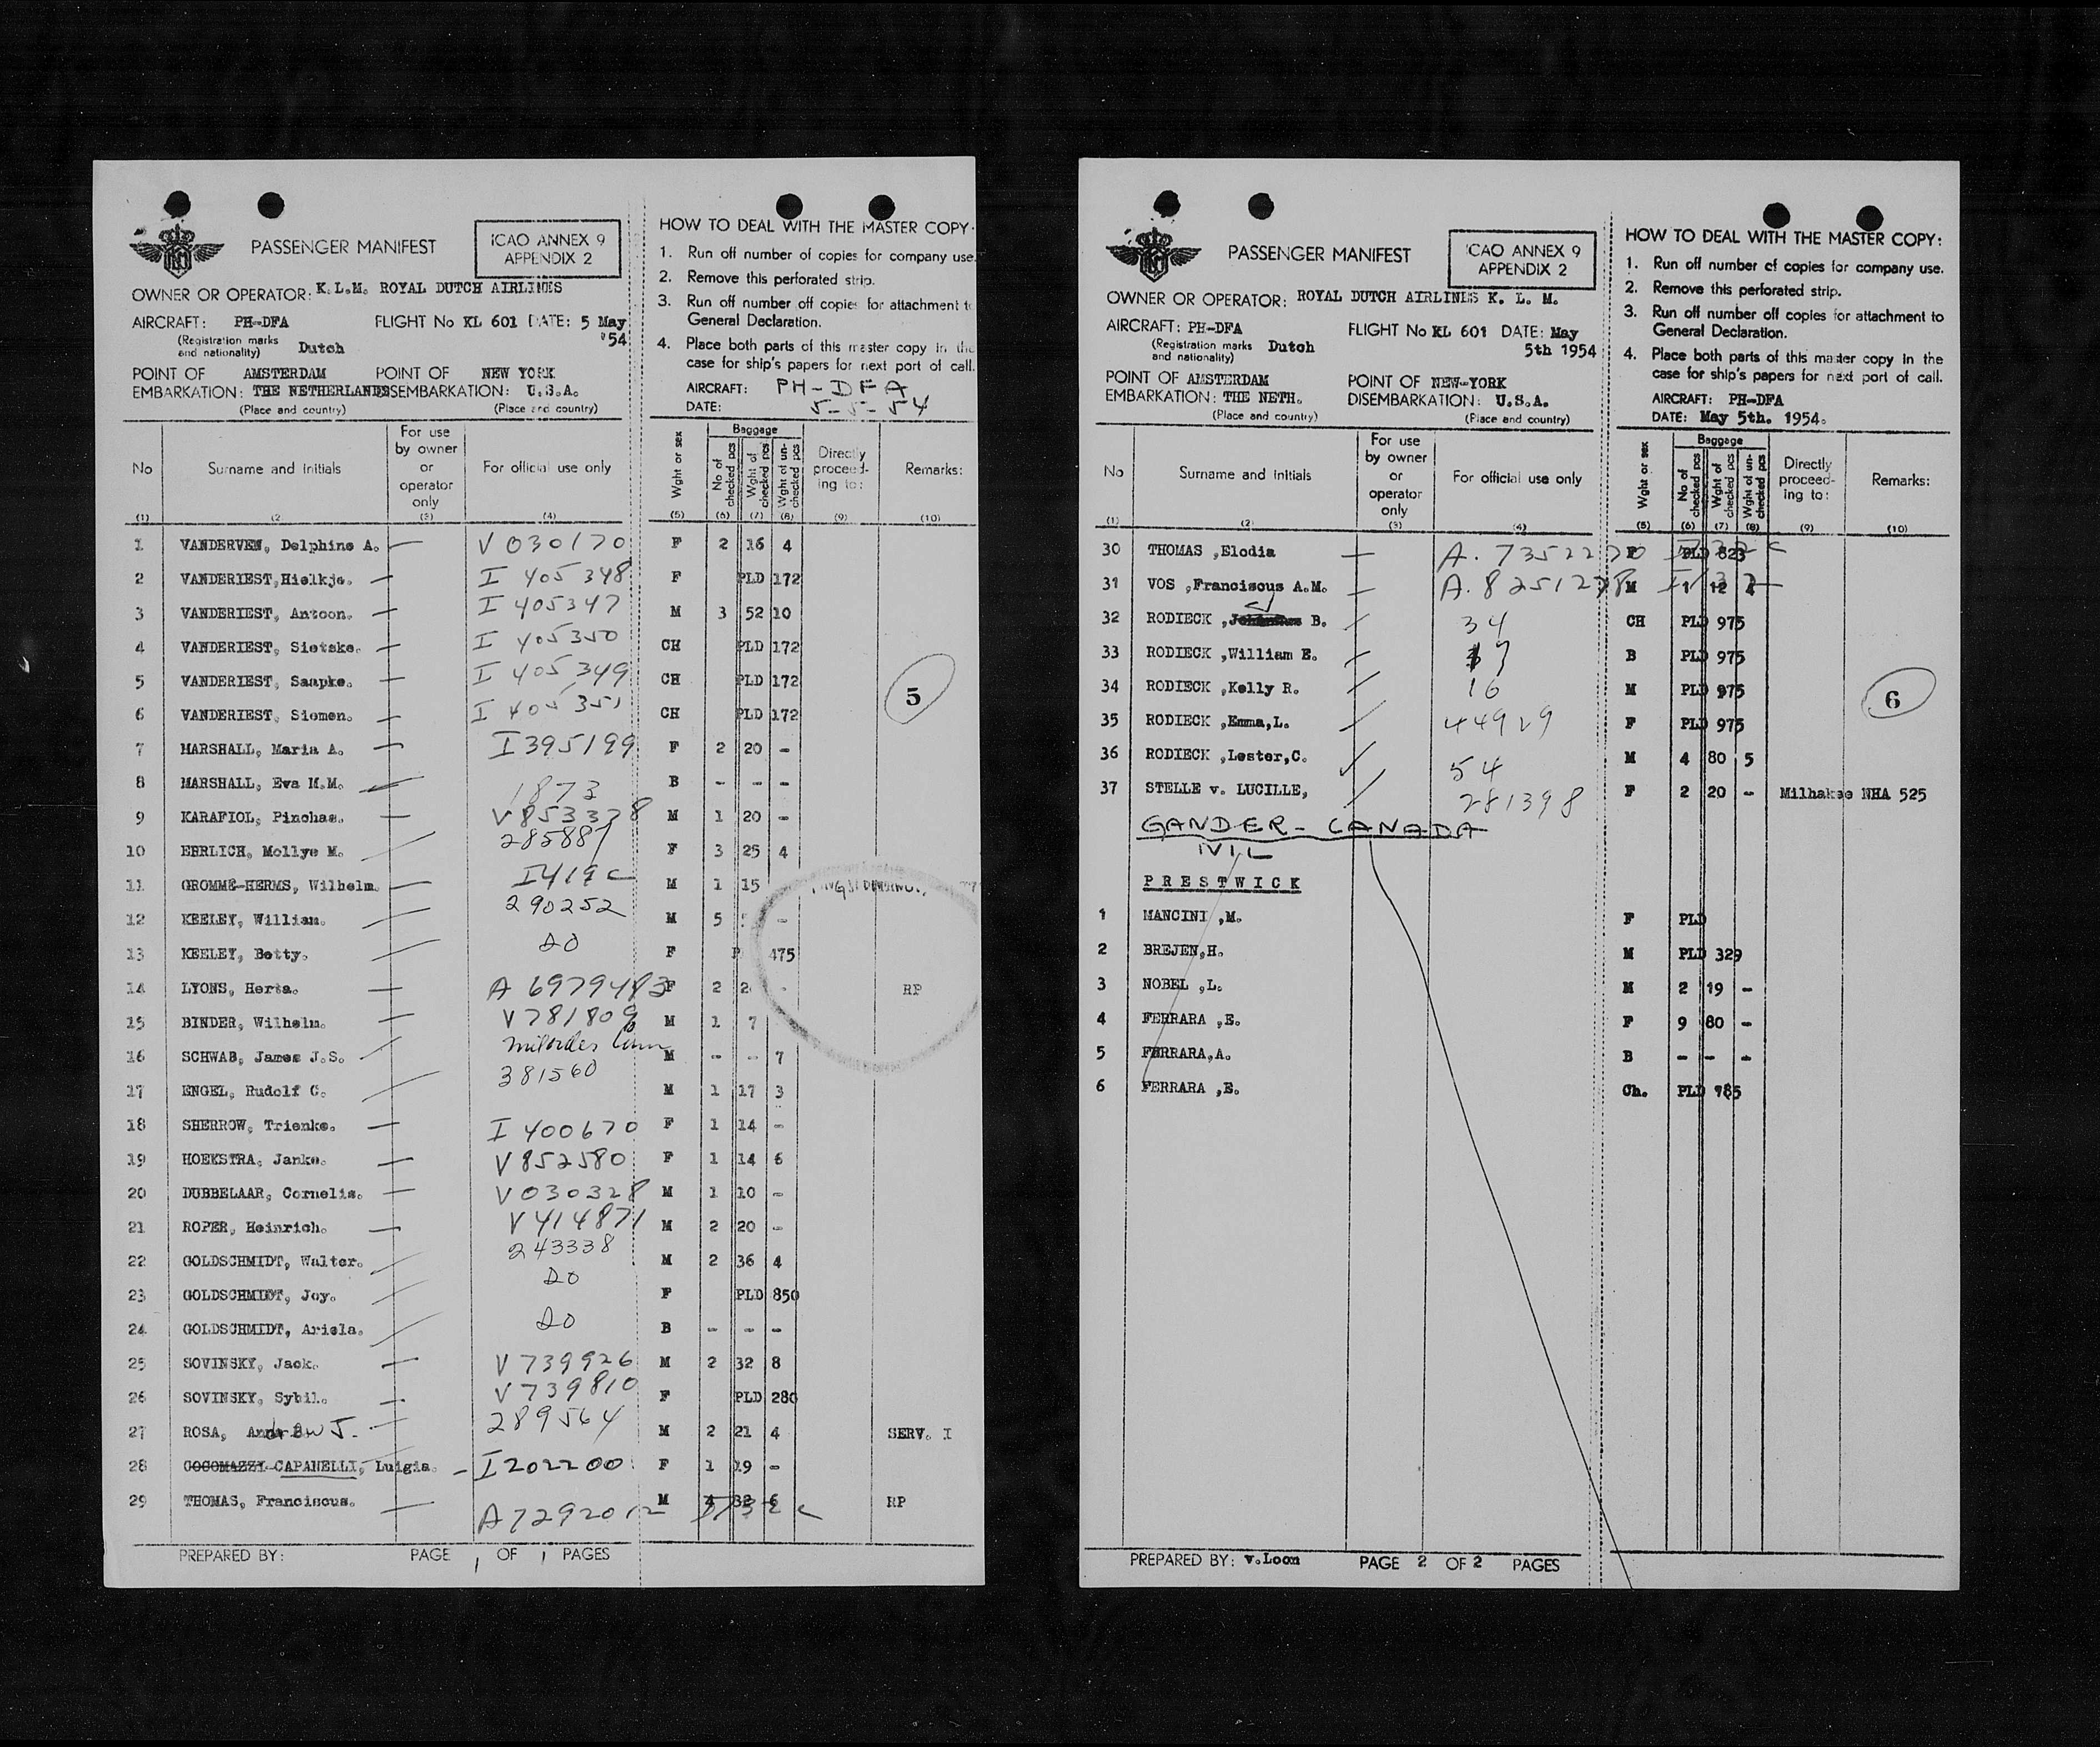 PASSENGER MANIFEST
ICAO ANNEX 9
APPENDIX 2
OWNER OR OPERATOR: K.L.M. ROYAL DUTCH AIRLINES
AIRCRAFT: PH-DFA FLIGHT No KL 601 DATE: 5 May '54
(Registration marks and nationality) Dutch
POINT OF EMBARKATION: AMSTERDAM THE NETHERLANDS POINT OF DISEMBARKATION: NEW YORK U.S.A.
(Place and country) (Place and country)
HOW TO DEAL WITH THE MASTER COPY:
1. Run off number of copies for company use.
2. Remove this perforated strip.
3. Run off number off copies for attachment to
General Declaration.
4. Place both parts of this master copy in the
case for ship's papers for next port of call.
AIRCRAFT: PH-DFA
DATE: 5-5-54
No Surname and Initials For use by owner or operator only For official use only Wght or sex Baggage No of checked pcs Wght of checked pcs Wght of un-checked pcs Directly proceed-ing to: Remarks:
(1) (2) (3) (4) (5) (6) (7) (8) (9) (10)
1 VANDERVEN, Delphine A. — V 030170 F 2 16 4
2 VANDERIEST, Hielkje. — I 405348 F PLD 172
3 VANDERIEST, Antoon. — I 405347 M 3 52 10
4 VANDERIEST, Sietske. — I 405350 CH PLD 172
5 VANDERIEST, Saapke. — I 405349 CH PLD 172
6 VANDERIEST, Siemen. — I 405351 CH PLD 172
5
7 MARSHALL, Maria A. — I395199 F 2 20 -
8 MARSHALL, Eva M.M. 1873 B - - -
9 KARAFIOL, Pinchas. — V853378 M 1 20 -
10 EHRLICH, Mollye M. 285887 F 3 25 4
11 GROMME-HERMS, Wilhelm. — I419c M 1 15
12 KEELEY, William. 290252 M 5 -
13 KEELEY, Betty. DO F 475
14 LYONS, Herta. — A 6979483 F 2 - RP
15 BINDER, Wilhelm. — V781809 M 1 7
16 SCHWAB, James J.S. M - - 7
17 ENGEL, Rudolf C. 381560 M 1 17 3
18 SHERROW, Trienke. — I 400670 F 1 14 -
19 HOEKSTRA, Janke. — V852580 F 1 14 6
20 DUBBELAAR, Cornelis. — V030328 M 1 10 -
21 ROPER, Heinrich. — V414871 M 2 20 -
22 GOLDSCHMIDT, Walter. 243338 M 2 36 4
23 GOLDSCHMIDT, Joy. DO F PLD 850
24 GOLDSCHMIDT, Ariela. DO B - - -
25 SOVINSKY, Jack. — V739926 M 2 32 8
26 SOVINSKY, Sybil. — V739810 F PLD 280
27 ROSA, Andrew J. — 289564 M 2 21 4 SERV. I
28 COCOMAZZI-CAPANELLI, Luigia. - I202200 F 1 19 -
29 THOMAS, Franciscus. — A7292012 M 4 32 6 RP
PREPARED BY: PAGE 1 OF 1 PAGES
PASSENGER MANIFEST
ICAO ANNEX 9
APPENDIX 2
OWNER OR OPERATOR: ROYAL DUTCH AIRLINES K. L. M.
AIRCRAFT: PH-DFA FLIGHT No KL 601 DATE: May 5th 1954
(Registration marks and nationality) Dutch
POINT OF EMBARKATION: AMSTERDAM THE NETH. POINT OF DISEMBARKATION: NEW-YORK U.S.A.
(Place and country) (Place and country)
HOW TO DEAL WITH THE MASTER COPY:
1. Run off number of copies for company use.
2. Remove this perforated strip.
3. Run off number off copies for attachment to
General Declaration.
4. Place both parts of this master copy in the
case for ship's papers for next port of call.
AIRCRAFT: PH-DFA
DATE: May 5th. 1954.
No Surname and Initials For use by owner or operator only For official use only Wght or sex Baggage No of checked pcs Wght of checked pcs Wght of un-checked pcs Directly proceed-ing to: Remarks:
(1) (2) (3) (4) (5) (6) (7) (8) (9) (10)
30 THOMAS ,Elodia — A. 7352270 F PLD 823
31 VOS ,Franciscus A.M. — A. 8251278 M 1 12 4
32 RODIECK , B. 34 CH PLD 975
33 RODIECK ,William E. 37 B PLD 975
34 RODIECK ,Kelly R. 16 M PLD 975
6
35 RODIECK ,Emma,L. 44929 F PLD 975
36 RODIECK ,Lester,C. 54 M 4 80 5
37 STELLE v. LUCILLE, 281398 F 2 20 - Milhakse NHA 525
GANDER - CANADA
NIL
PRESTWICK
1 MANCINI ,M. F PLD
2 BREJEN,H. M PLD 329
3 NOBEL ,L. M 2 19 -
4 FERRARA ,E. F 9 80 -
5 FERRARA,A. B - - -
6 FERRARA ,E. Ch. PLD 985
PREPARED BY: v.Loon PAGE 2 OF 2 PAGES